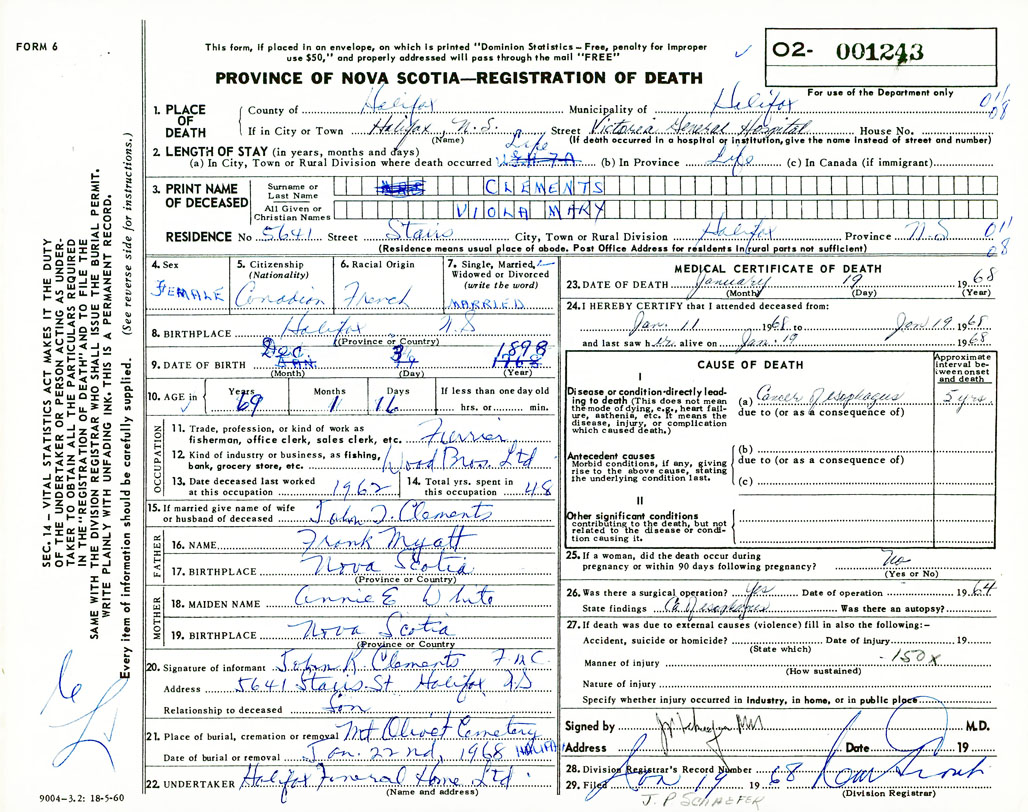 FORM 6
This form, if placed in an envelope, on which is printed "Dominion Statistics – Free, penalty for improper
use $50," and properly addressed will pass through the mail "FREE"
PROVINCE OF NOVA SCOTIA—REGISTRATION OF DEATH
O2- 001243
For use of the Department only
1. PLACE OF DEATH
County of Halifax Municipality of Halifax
If in City or Town Halifax, N.S. Street Victoria General Hospital House No.
(Name) (If death occurred in a hospital or institution, give name instead of street and number)
2. LENGTH OF STAY (in years, months and days)
(a) In City, Town or Rural Division where death occurred Life (b) In Province Life (c) In Canada (if immigrant)
3. PRINT NAME OF DECEASED
Surname or Last Name CLEMENTS
All Given or Christian Names VIOLA MARY
RESIDENCE No 5641 Street Stairs City, Town or Rural Division Halifax Province N.S
(Residence means usual place of abode. Post Office Address for residents in rural parts not sufficient)
011
08
011
08
4. Sex
FEMALE
5. Citizenship
(Nationality)
Canadian
6. Racial Origin
French
7. Single, Married, Widowed or Divorced
(write the word)
MARRIED
8. BIRTHPLACE Halifax N.S
(Province or Country)
9. DATE OF BIRTH Dec. 3 1898
(Month) (Day) (Year)
10. AGE in Years 69 Months 1 Days 16 If less than one day old hrs. or min.
OCCUPATION
11. Trade, profession, or kind of work as
fisherman, office clerk, sales clerk, etc. Furrier
12. Kind of industry or business, as fishing,
bank, grocery store, etc. Wood Bros. Ltd
13. Date deceased last worked at this occupation 1962
14. Total yrs. spent in this occupation 48
15. If married give name of wife or husband of deceased John J. Clements
FATHER
16. NAME Frank Myatt
17. BIRTHPLACE Nova Scotia
(Province or Country)
MOTHER
18. MAIDEN NAME Annie E White
19. BIRTHPLACE Nova Scotia
(Province or Country
20. Signature of informant John K. Clements
Address 5641 Stairs St Halifax N.S
Relationship to deceased Son
21. Place of burial, cremation or removal Mt Olivet Cemetery
Date of burial or removal Jan. 22nd, 1968 HALIFAX
22. UNDERTAKER Halifax Funeral Home Ltd.
(Name and address)
MEDICAL CERTIFICATE OF DEATH
23. DATE OF DEATH January 19 1968
(Month) (Day) (Year)
24. I HEREBY CERTIFY that I attended deceased from:
Jan. 11 1968 to Jan 19 1968
and last saw her alive on Jan. 19 1968
CAUSE OF DEATH
Approximate interval between onset and death
I
Disease or condition directly leading to death (This does not mean the mode of dying, e.g., heart failure, asthenia, etc. It means the disease, injury, or complication which caused death.)
(a) Cancer Oesophagus 5 yrs.
due to (or as a consequence of)
Antecedent causes
Morbid conditions, if any, giving rise to the above cause, stating the underlying condition last.
(b)
due to (or as a consequence of)
(c)
II
Other significant conditions
contributing to the death, but not related to the disease or condition causing it.
25. If a woman, did the death occur during
pregnancy or within 90 days following pregnancy? No
(Yes or No)
26. Was there a surgical operation? Yes Date of operation 1964
State findings Ca. Oesophagus Was there an autopsy?
27. If death was due to external causes (violence) fill in also the following:–
Accident, suicide or homicide? Date of injury 19
(State which)
Manner of injury
(How sustained)
- 150X
Nature of injury
Specify whether injury occurred in industry, in home, or in public place
Signed by M.D.
Address Date 19
28. Division Registrar's Record Number
29. Filed Jan 19 1968
(Division Registrar)
J. P SCHAEFER
SEC. 14 – VITAL STATISTICS ACT MAKES IT THE DUTY
OF THE UNDERTAKER OR PERSON ACTING AS UNDER-
TAKER TO OBTAIN ALL THE PARTICULARS REQUIRED
IN THE "REGISTRATION OF DEATH" AND TO FILE THE
SAME WITH THE DIVISION REGISTRAR WHO SHALL ISSUE THE BURIAL PERMIT.
WRITE PLAINLY WITH UNFADING INK. THIS IS A PERMANENT RECORD.
Every item of information should be carefully supplied. (See reverse side for instructions.)
9004–3.2: 18-5-60